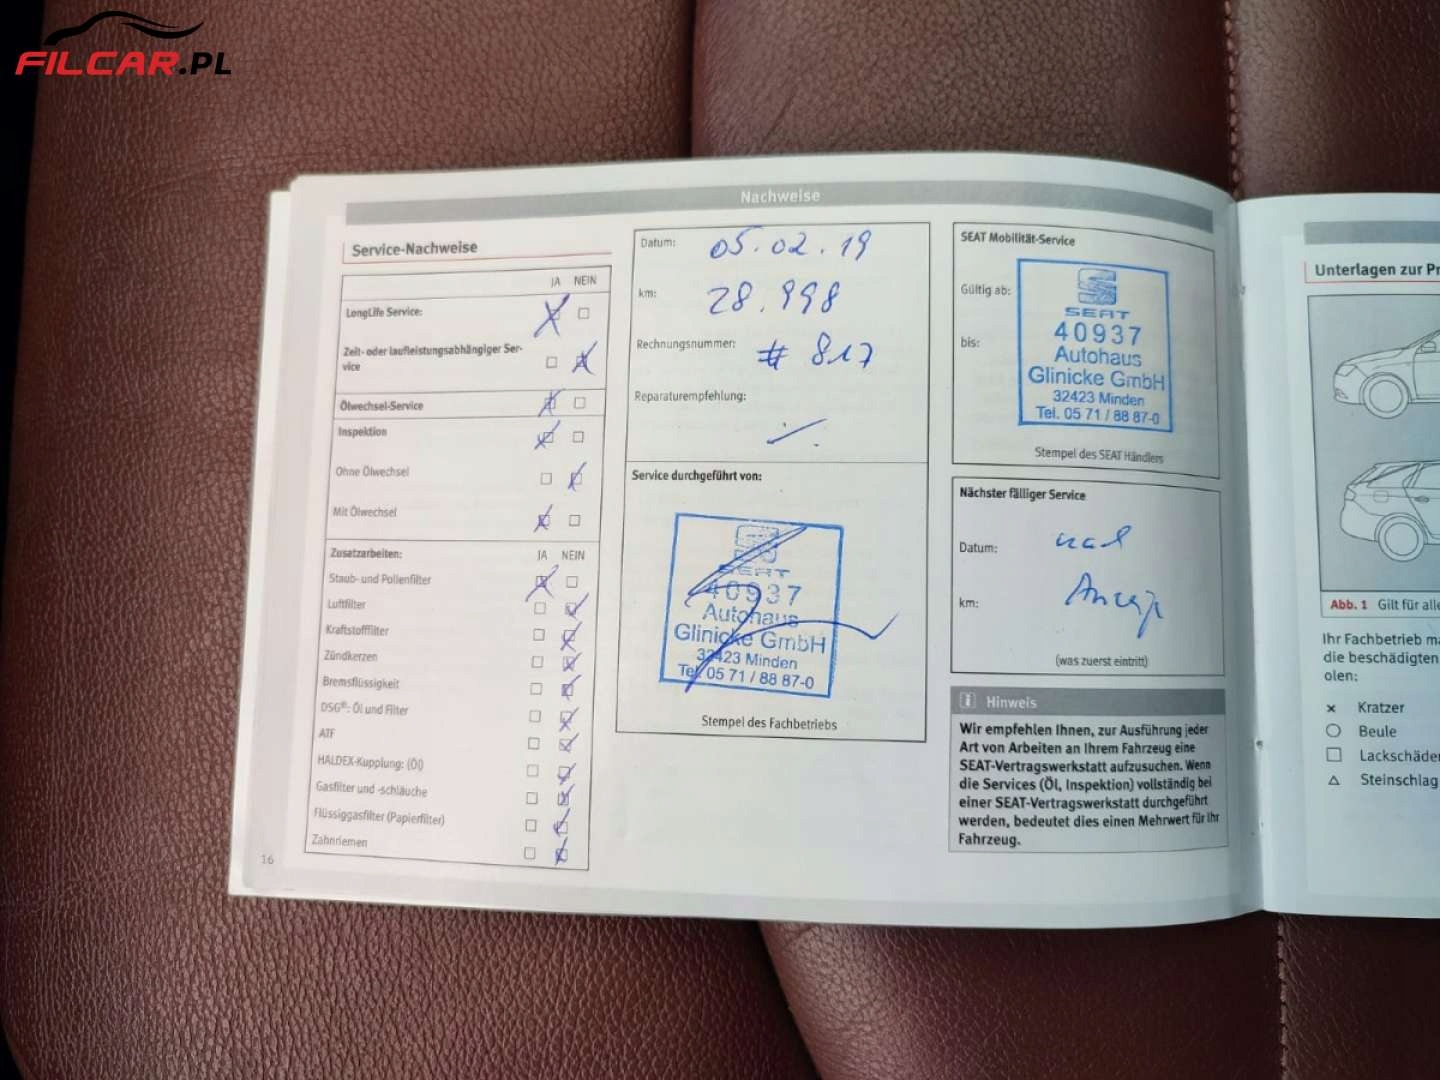 FILCAR.PL
Nachweise
Service-Nachweise
JA NEIN
LongLife Service:
Zeit- oder laufleistungsabhängiger Ser-
vice
Ölwechsel-Service
Inspektion
Ohne Ölwechsel
Mit Ölwechsel
Zusatzarbeiten: JA NEIN
Staub- und Pollenfilter
Luftfilter
Kraftstofffilter
Zündkerzen
Bremsflüssigkeit
DSG®: Öl und Filter
ATF
HALDEX-Kupplung: (Öl)
Gasfilter und -schläuche
Flüssiggasfilter (Papierfilter)
Zahnriemen
16
Datum: 05.02.19
km: 28.998
Rechnungsnummer: # 817
Reparaturempfehlung:
Service durchgeführt von:
SEAT
40937
Autohaus
Glinicke GmbH
32423 Minden
Tel. 05 71 / 88 87-0
Stempel des Fachbetriebs
SEAT Mobilität-Service
Gültig ab:
bis:
SEAT
40937
Autohaus
Glinicke GmbH
32423 Minden
Tel. 05 71 / 88 87-0
Stempel des SEAT Händlers
Nächster fälliger Service
Datum:
km:
(was zuerst eintritt)
i Hinweis
Wir empfehlen Ihnen, zur Ausführung jeder
Art von Arbeiten an Ihrem Fahrzeug eine
SEAT-Vertragswerkstatt aufzusuchen. Wenn
die Services (Öl, Inspektion) vollständig bei
einer SEAT-Vertragswerkstatt durchgeführt
werden, bedeutet dies einen Mehrwert für Ihr
Fahrzeug.
Unterlagen zur Pr
Abb. 1 Gilt für alle
Ihr Fachbetrieb ma
die beschädigten
olen:
Kratzer
Beule
Lackschäde
Steinschlag